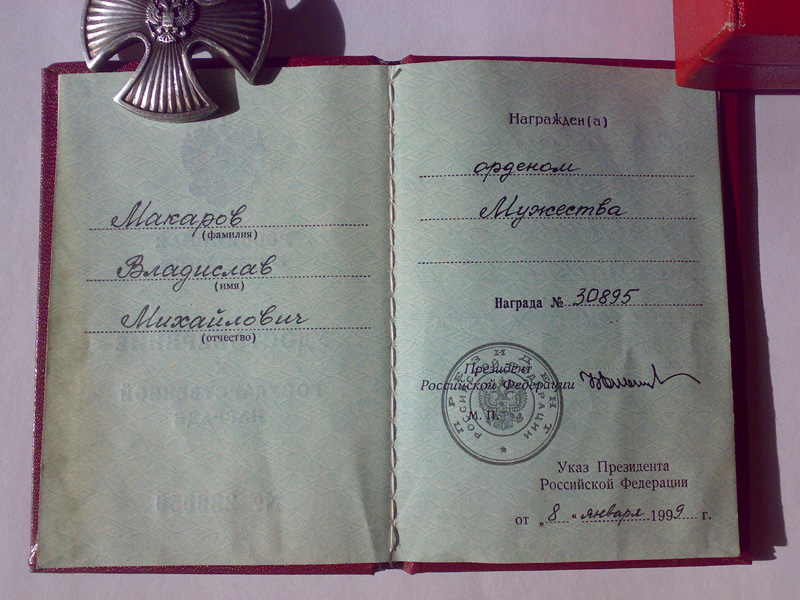 Макаров
(фамилия)
Владислав
(имя)
Михайлович
(отчество)
Награжден(а)
орденом
Мужества
Награда № 30895
Президент
Российской Федерации
М. П.
ПРЕЗИДЕНТ
РОССИЙСКОЙ ФЕДЕРАЦИИ
Указ Президента
Российской Федерации
от „8“ января 1999 г.